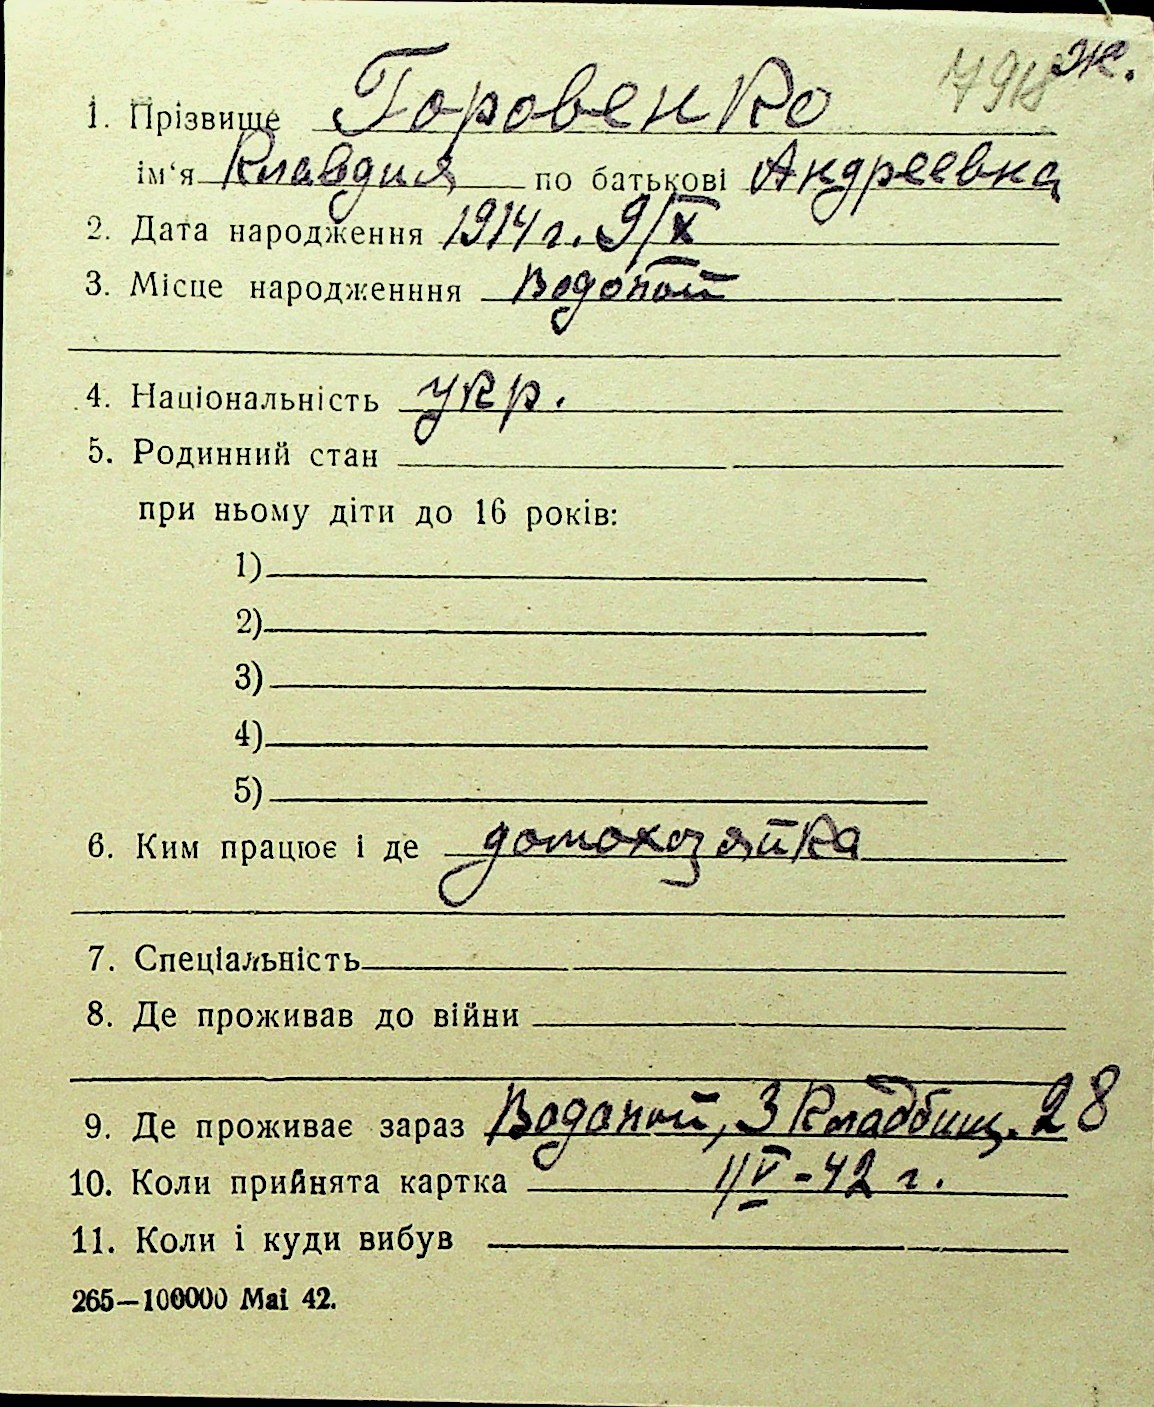 ж.
1. Прізвище Горовенко
ім'я Клавдия по батькові Андреевна
2. Дата народження 1914 г. 9/X
3. Місце народженння Водопой
4. Національність укр.
5. Родинний стан
при ньому діти до 16 років:
1)
2)
3)
4)
5)
6. Ким працює і де домохозяйка
7. Спеціальність
8. Де проживав до війни
9. Де проживає зараз Водопой, 3 Кладбищ. 28
10. Коли прийнята картка 1/V-42 г.
11. Коли і куди вибув
265—100000 Mai 42.